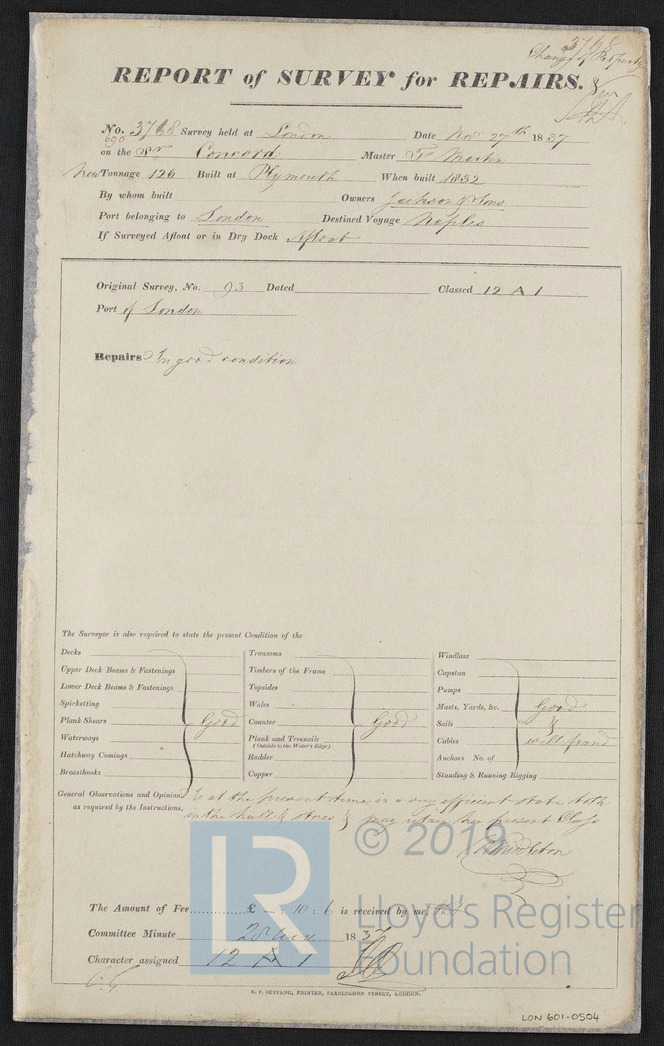 3768
Change of Property
&
REPORT of SURVEY for REPAIRS.
No. 3768 Survey held at London Date Nov 27th 1837
690
on the Sr Concord Master
New Tonnage 126 Built at Plymouth When built 1832
By whom built Owners Jackson & Sons
Port belonging to London Destined Voyage Naples
If Surveyed Afloat or in Dry Dock Afloat
Original Survey, No. 93 Dated Classed 12 A 1
Port of London
Repairs In good condition
The Surveyor is also required to state the present Condition of the
Decks
Upper Deck Beams & Fastenings
Lower Deck Beams & Fastenings
Spirketting
Plank Shears Good
Waterways
Hatchway Comings
Breasthooks
Transoms
Timbers of the Frame
Topsides
Wales
Counter Good
Plank and Treenails
(Outside to the Water's Edge)
Rudder
Copper
Windlass
Capstan
Pumps
Masts, Yards, &c. Good
Sails &
Cables well found
Anchors No. of
Standing & Running Rigging
General Observations and Opinion, Is at the present time in a very efficient state both
as required by the Instructions, in the hull & stores & may retain her present Class
Middleton
The Amount of Fee £ — : 10 : 6 is received by me,
Committee Minute 28 Nov 1837
Character assigned 12 A 1
© 2019
LR
Lloyd's Register
Foundation
G. F. SEYFANG, PRINTER, FARRINGDON STREET, LONDON.
LON 601-0504